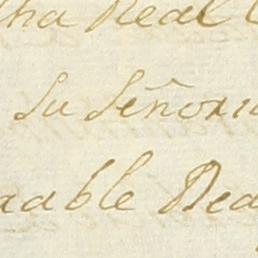 tha Real
Su Señori
dable Rea